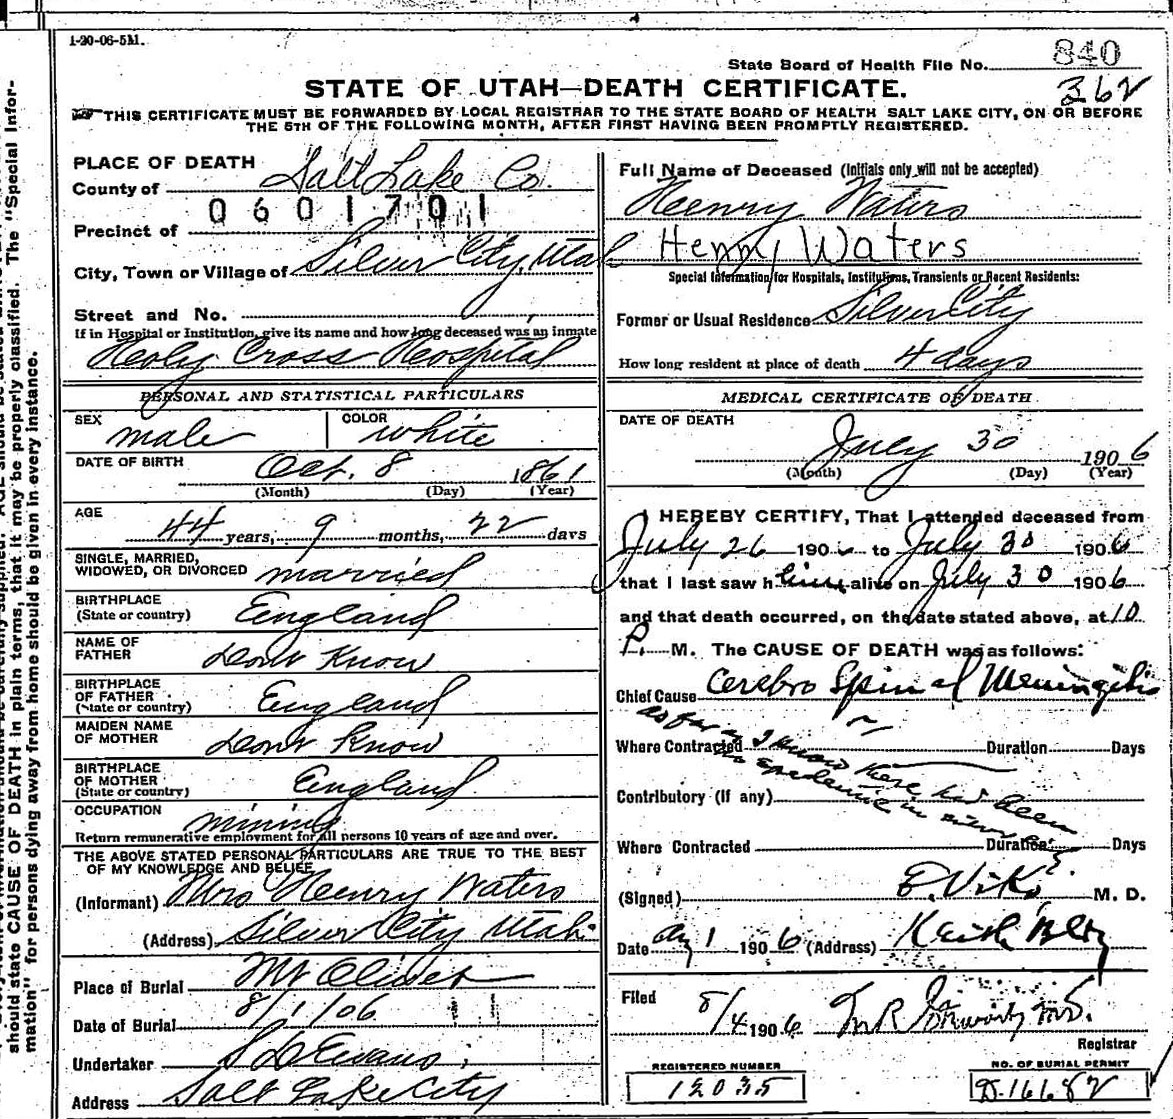 1-20-06-5M.
State Board of Health File No. 840
362
STATE OF UTAH—DEATH CERTIFICATE.
THIS CERTIFICATE MUST BE FORWARDED BY LOCAL REGISTRAR TO THE STATE BOARD OF HEALTH SALT LAKE CITY, ON OR BEFORE
THE 5TH OF THE FOLLOWING MONTH, AFTER FIRST HAVING BEEN PROMPTLY REGISTERED.
PLACE OF DEATH
County of Salt Lake Co.
0601701
Precinct of
City, Town or Village of Silver City, Utah
Street and No.
If in Hospital or Institution, give its name and how long deceased was an inmate
Holy Cross Hospital
PERSONAL AND STATISTICAL PARTICULARS
SEX male COLOR white
DATE OF BIRTH Oct. 8 1861
(Month) (Day) (Year)
AGE 44 years, 9 months, 22 days
SINGLE, MARRIED,
WIDOWED, OR DIVORCED married
BIRTHPLACE
(State or country) England
NAME OF
FATHER Dont Know
BIRTHPLACE
OF FATHER
(State or country) England
MAIDEN NAME
OF MOTHER Dont Know
BIRTHPLACE
OF MOTHER
(State or country) England
OCCUPATION mining
Return remunerative employment for all persons 10 years of age and over.
THE ABOVE STATED PERSONAL PARTICULARS ARE TRUE TO THE BEST
OF MY KNOWLEDGE AND BELIEF
(Informant) Mrs Henry Waters
(Address) Silver City Utah
Place of Burial Mt Olivet
Date of Burial 8/1/06
Undertaker S D Evans
Address Salt Lake City
Full Name of Deceased (Initials only will not be accepted)
Henry Waters
Henry Waters
Special Information for Hospitals, Institutions, Transients or Recent Residents:
Former or Usual Residence Silver City
How long resident at place of death 4 days
MEDICAL CERTIFICATE OF DEATH
DATE OF DEATH
July 30 1906
(Month) (Day) (Year)
I HEREBY CERTIFY, That I attended deceased from
July 26 1906 to July 30 1906
that I last saw him alive on July 30 1906
and that death occurred, on the date stated above, at 10
P. M. The CAUSE OF DEATH was as follows:
Chief Cause Cerebro Spinal Meningitis
Where Contracted Duration Days
as far as I know there has been
no epidemic in silver city
Contributory (If any)
Where Contracted Duration Days
(Signed) M. D.
Date Aug 1 1906 (Address) Keith Bldg
Filed 8/4 1906
Registrar
REGISTERED NUMBER
12035
NO. OF BURIAL PERMIT
D-16682
should state CAUSE OF DEATH in plain terms, that it may be properly classified. The "Special Infor-
mation" for persons dying away from home should be given in every instance.